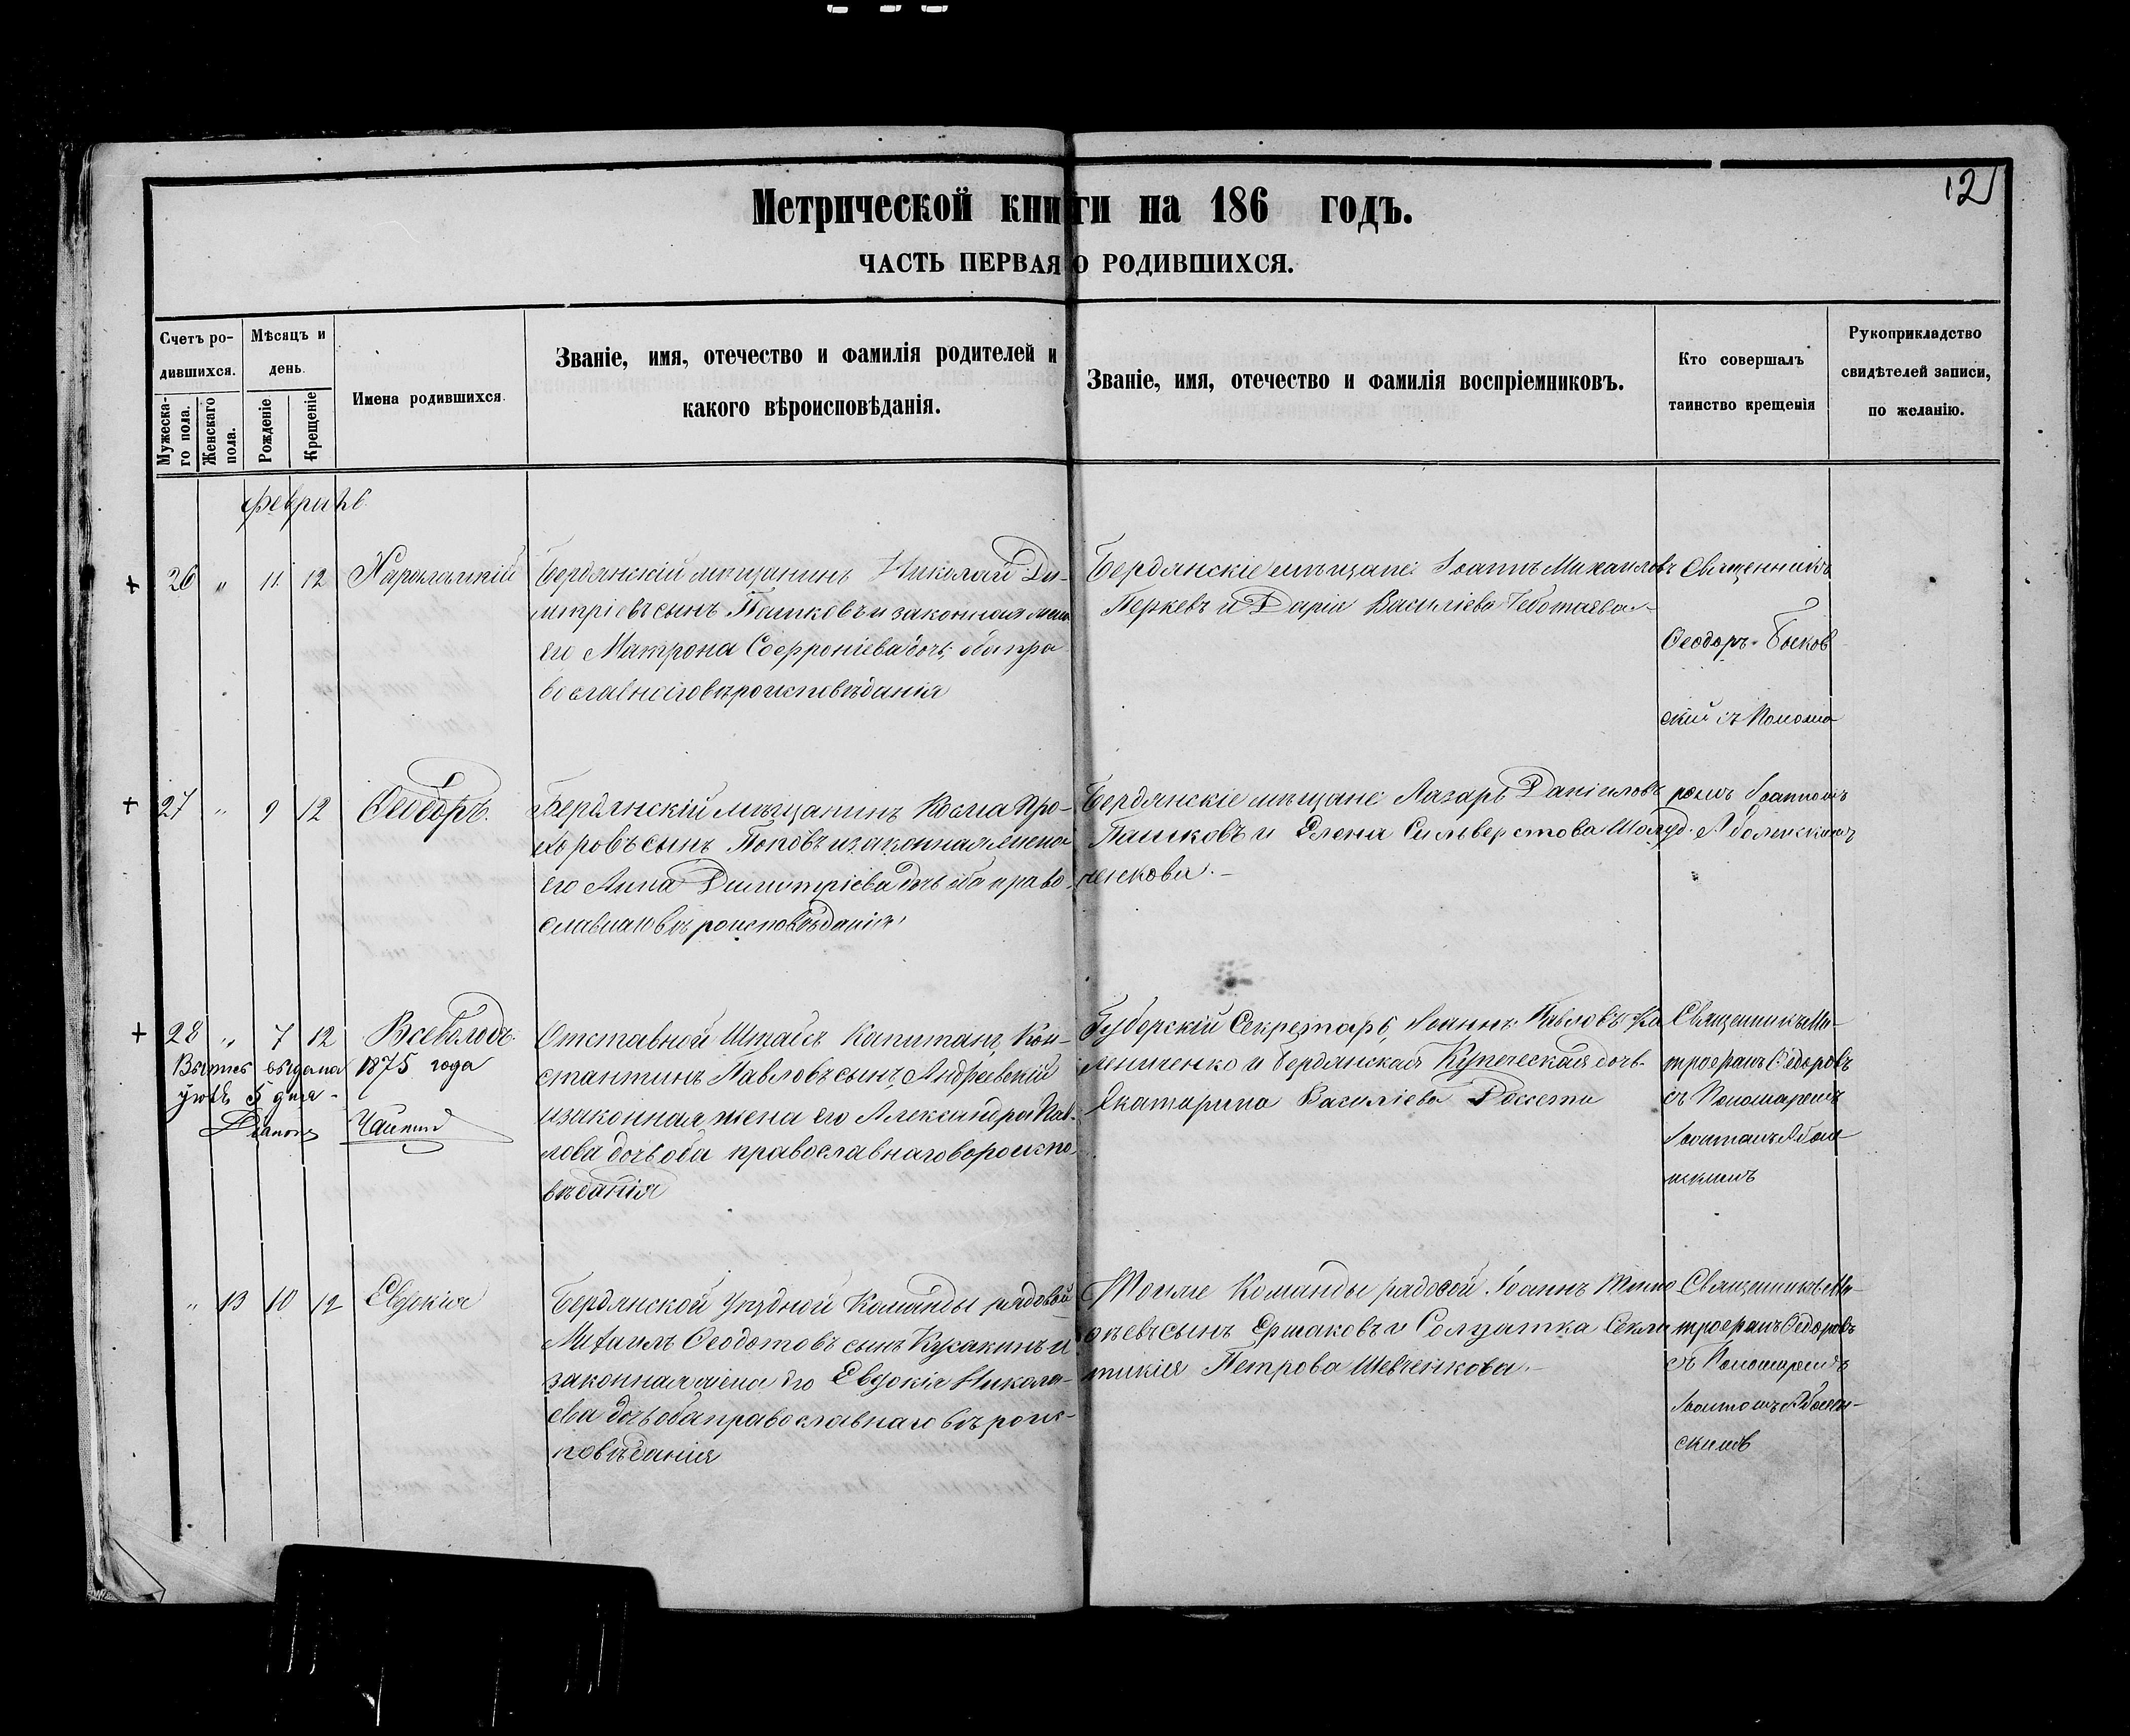 12
Метрической книги на 186 годъ.
ЧАСТЬ ПЕРВАЯ О РОДИВШИХСЯ.
Счетъ ро-
дившихся.
Мужеска-
го пола.
Женскаго
пола.
Мѣсяцъ и
день.
Рожденіе
Крещеніе
Имена родившихся.
Званіе, имя, отечество и фамилія родителей и
какого вѣроисповѣданія.
Званіе, имя, отечество и фамилія воспріемниковъ.
Кто совершалъ
таинство крещенія
Рукоприкладство
свидѣтелей записи,
по желанію.
Февраль
+ 26 " 11 12 Харалампій
Бердянскій мѣщанинъ Николай Ди-
митріевъ сынъ Пашковъ и законная жена
его Матрона Софроніева дочь, оба пра
вославнаго вѣроисповѣданія
Бердянскіе мѣщане: Іоаннъ Михаиловъ
и Дарія Василіева
Священникъ
Феодоръ Быков
скій съ Понома
+ 27 " 9 12 Феодоръ.
Бердянскій мѣщанинъ Косма Про-
хоровъ сынъ Поповъ и законная жена
его Анна Димитріева дочь оба право
славнаго вѣроисповѣданія
Бердянскіе мѣщане Лазарь Даніиловъ
Пашковъ и Елена Сильверстова Шолуд.
ченкова.
ромъ Іоанномъ
+ 28 " 7 12 Всеволодъ.
Выпись выдана 1875 года
5 дня
Діаконъ
Отставной Штабсъ Капитанъ, Кон-
стантинъ Павловъ сынъ Андреевскій
и законная жена его Александра Пав-
лова дочь оба православнаго вероиспо-
вѣданія
Губерскій Секретарь, Іоаннъ Павловъ
и Бердянская Купеческая дочь
Екатарина Василіева
Священникъ Ми-
трофанъ Федоровъ
съ Пономаремъ
" 13 10 12 Евдокія
Бердянской Уѣздной Команды рядовой
Михаилъ Феодотовъ сынъ Кусакинъ и
законная жена его Евдокія Никола-
ева дочь оба православнаго вѣроис-
повѣданія
Тойже Команды рядовой Іоаннъ Тимо
фѣевъ сынъ Ермаковъ и Солдатка Секли
тикія Петрова Шевченкова.
Священникъ Ми-
трофанъ Федоровъ
съ Пономаремъ
скимъ